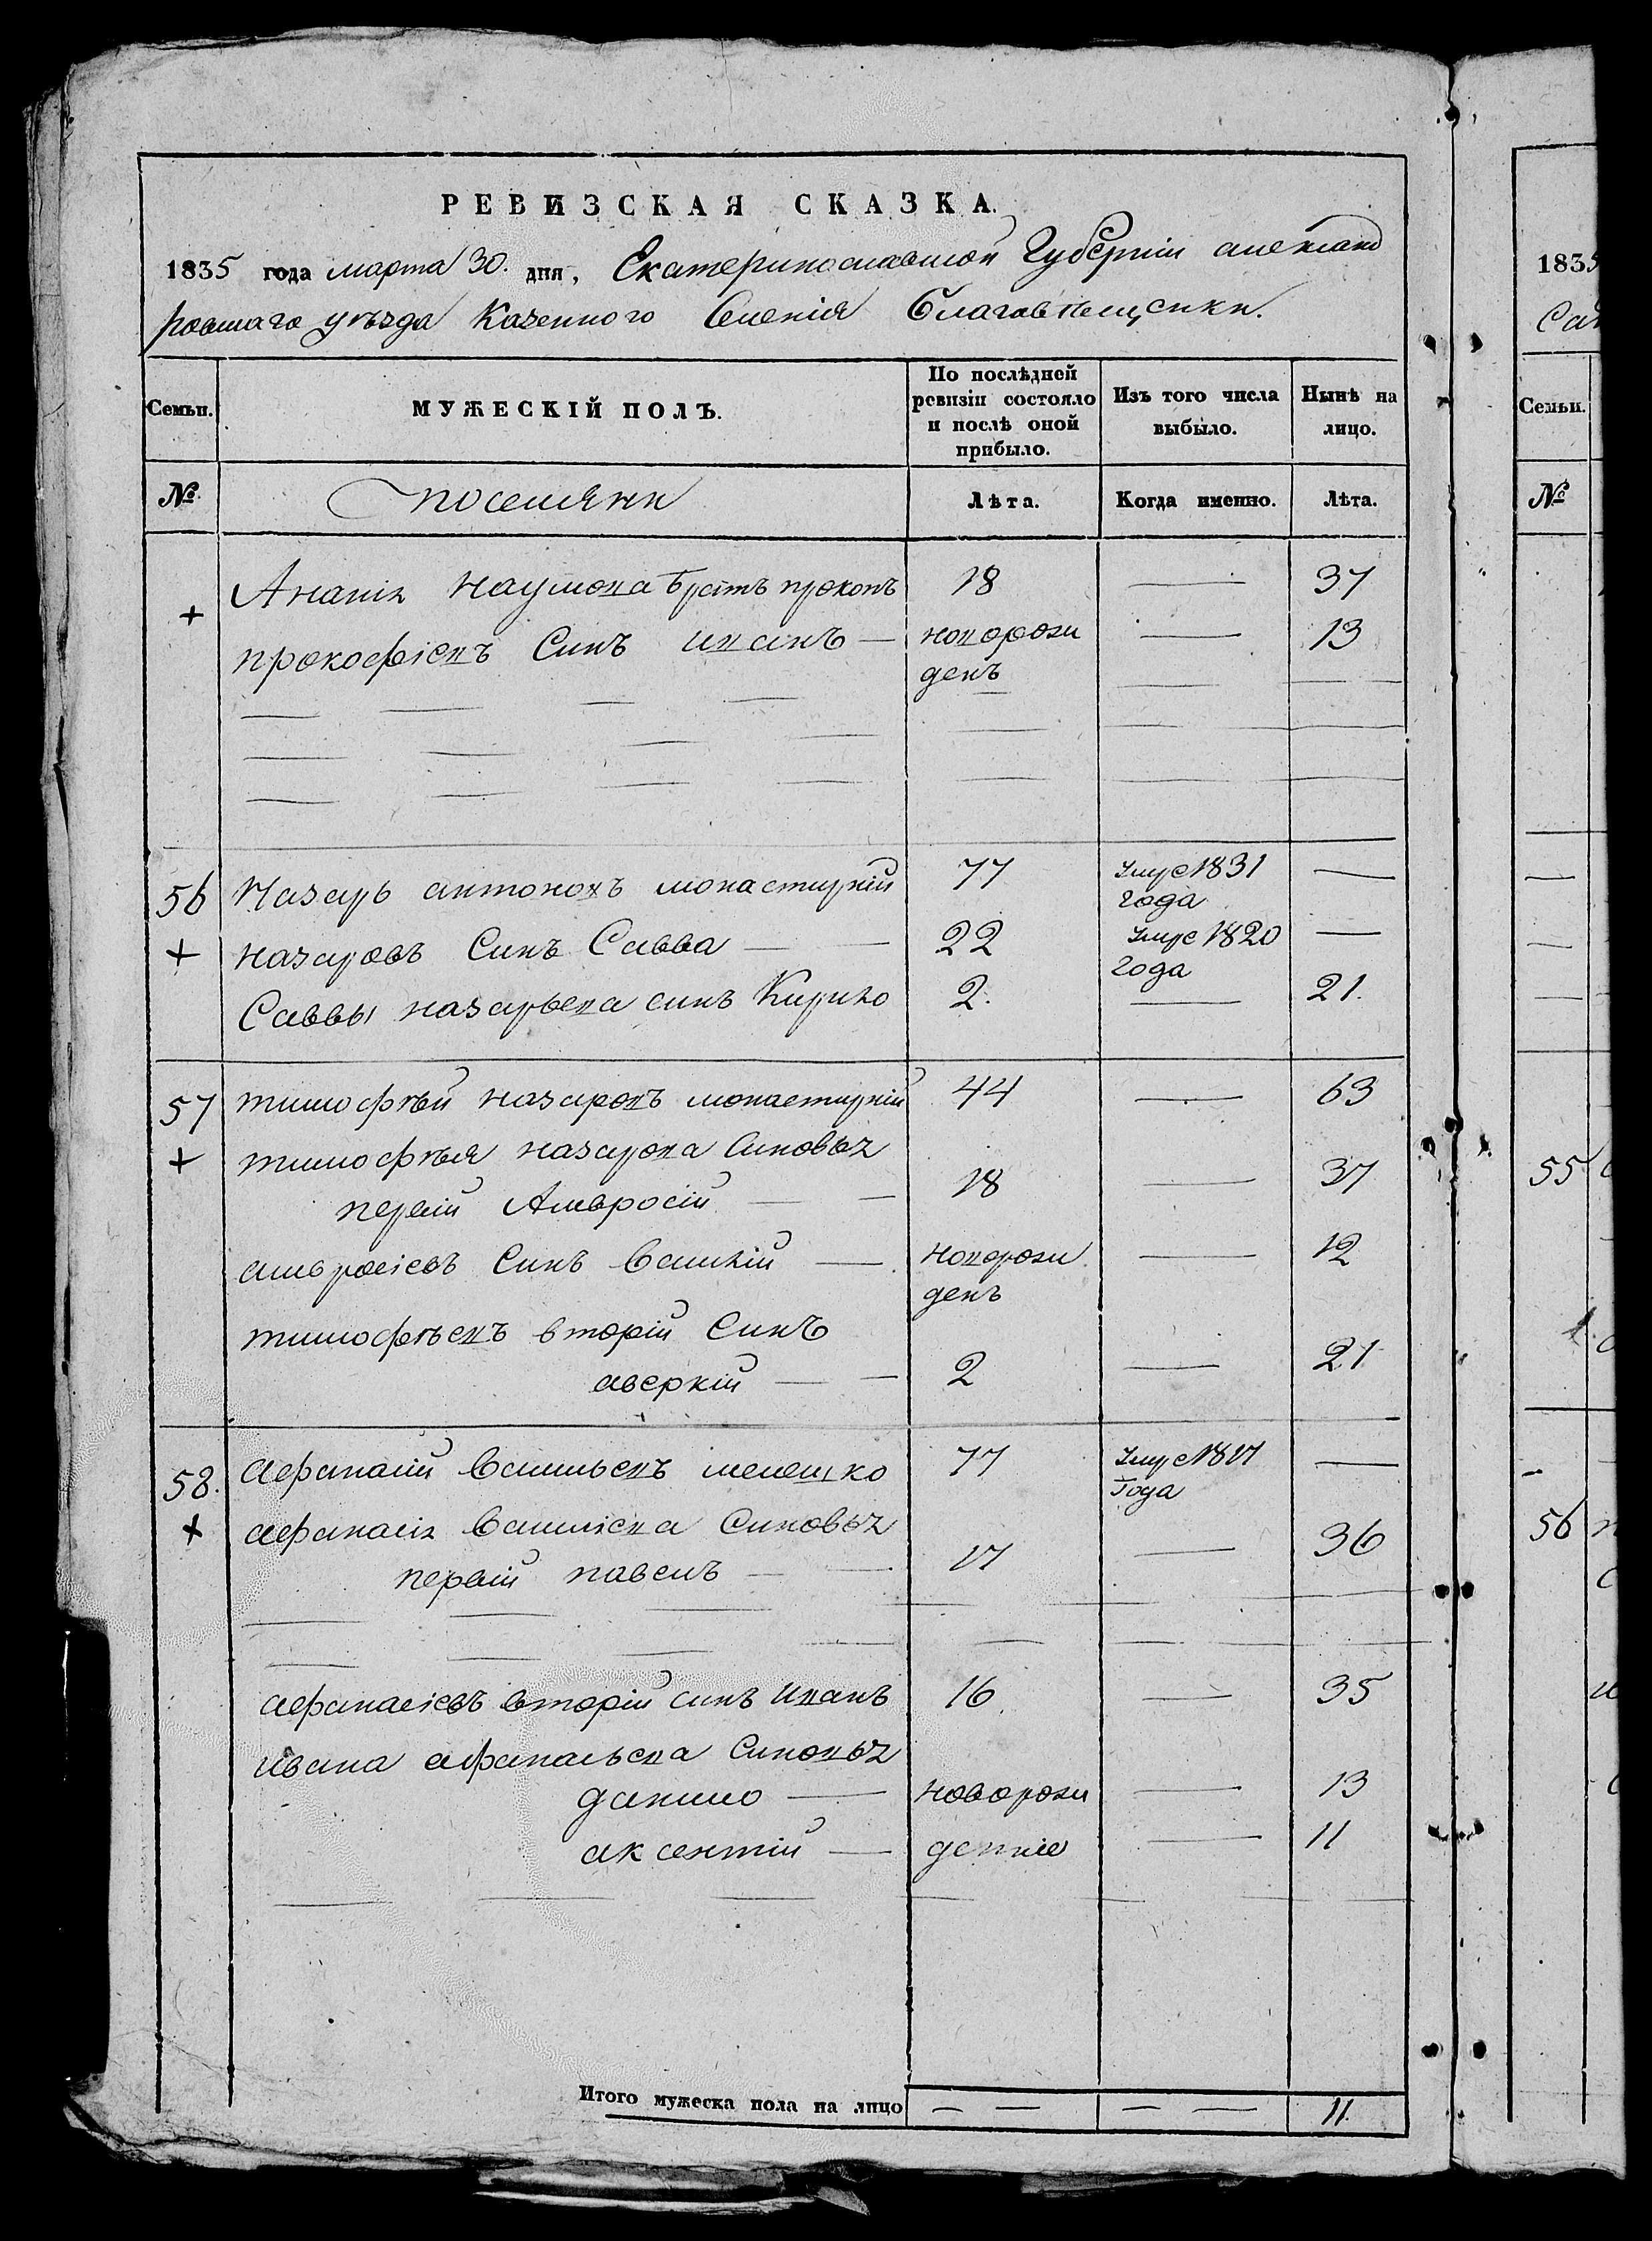 РЕВИЗСКАЯ СКАЗКА.
1835 года марта 30. дня, Екатеринославской Губерніи александ
ровскаго уѣзда Казенного Селенія Благовѣщенки.
Семьи. МУЖЕСКІЙ ПОЛЪ. По послѣдней ревизіи состояло и послѣ оной прибыло. Изъ того числа выбыло. Нынѣ на лицо.
№ поселяни Лѣта. Когда именно. Лѣта.
+ Ананія Наумова братъ прокопъ 18 — 37
прокофіевъ Синъ иванъ — новорож — 13
денъ
56 Назаръ антоновъ монастирній 77 умре 1831 —
года
+ назаровъ Синъ Савва — 22 умре 1820 —
года
Саввы назарьева синъ Кирило 2. — 21.
57 тимофѣй назаровъ монастирній 44 — 63
+ тимофѣя назарова Синовья
первій Амвросій — 18 — 37
амвросіевъ Синъ Василій — новорож — 12
денъ
тимофѣевъ вторій Синъ
аверкій — 2 — 21
58. афанасій Васильевъ 77 умре 1817 —
Года
+ афанасія Василіева Синовья
первій павелъ — 17 — 36
афанасіевъ вторій синъ иванъ 16. — 35
ивана афанасьева Синовья
данило — новорож — 13
аксентій — денніе — 11
Итого мужеска пола на лицо — — — — 11.
1835
Семьи.
№
55
56